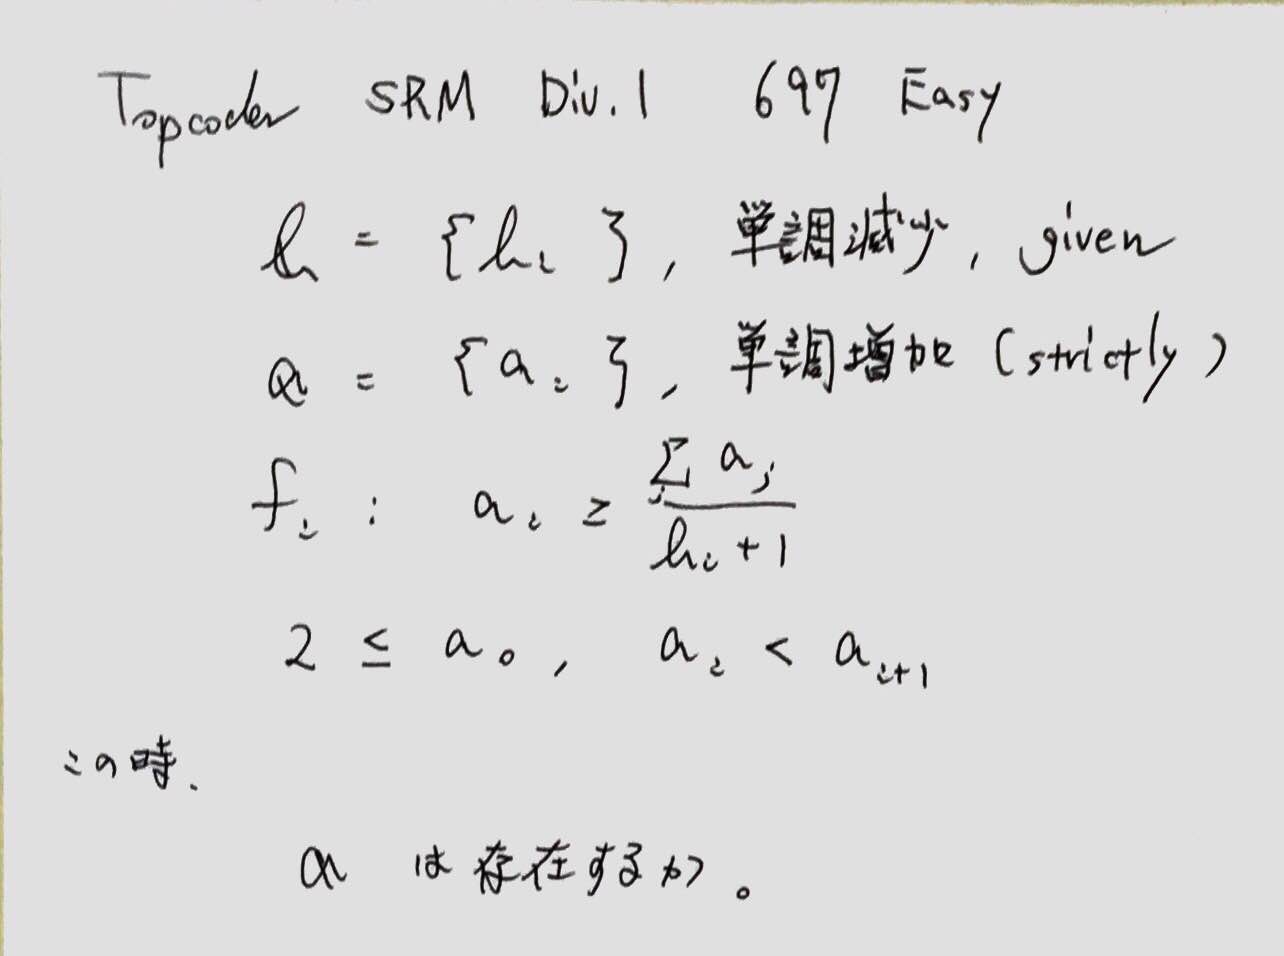 Topcoder SRM Div.1 697 Easy
h = {hi}, 単調減少, given
a = {ai}, 単調増加 (strictly)
fi : ai ≥ Σj aj / hi + 1
2 ≤ a0, ai < ai+1
この時、
a は存在するか。